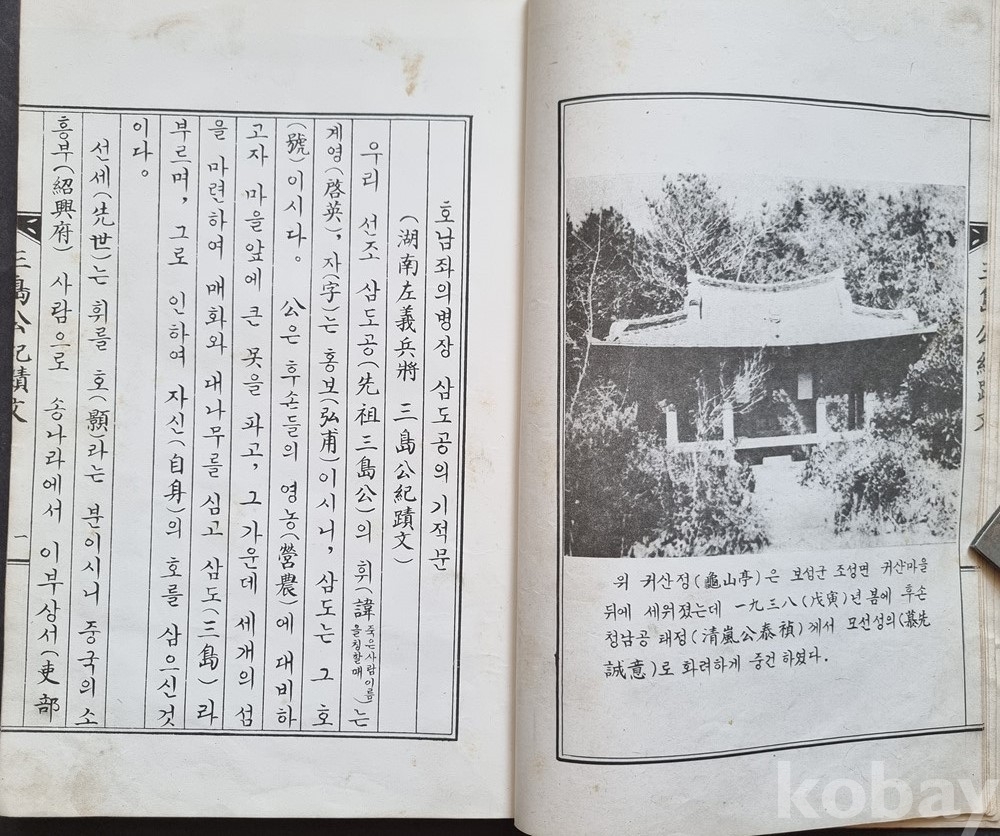 위 귀산정(龜山亭)은 보성군 조성면 귀산마을
뒤에 세워졌는데 一九三八(戊寅)년 봄에 후손
청남공 태정(清嵐公泰禎)께서 모선성의(慕先
誠意)로 화려하게 중건 하였다.
호남좌의병장 삼도공의 기적문
(湖南左義兵將 三島公紀蹟文)
우리 선조 삼도공(先祖三島公)의 휘(諱 죽은사람이름을칭할때)는
계영(啓英), 자(字)는 홍보(弘甫)이시니, 삼도는 그 호
(號)이시다. 공은 후손들의 영농(營農)에 대비하
고자 마을앞에 큰 못을 파고, 그 가운데 세개의 섬
을 마련하여 매화와 대나무를 심고 삼도(三島)라
부르며, 그로 인하여 자신(自身)의 호를 삼으신것
이다.
선세(先世)는 휘를 호(顥)라는 분이시니 중국의 소
흥부(紹興府) 사람으로 송나라에서 이부상서(吏部
三島公紀蹟文
一
kobay